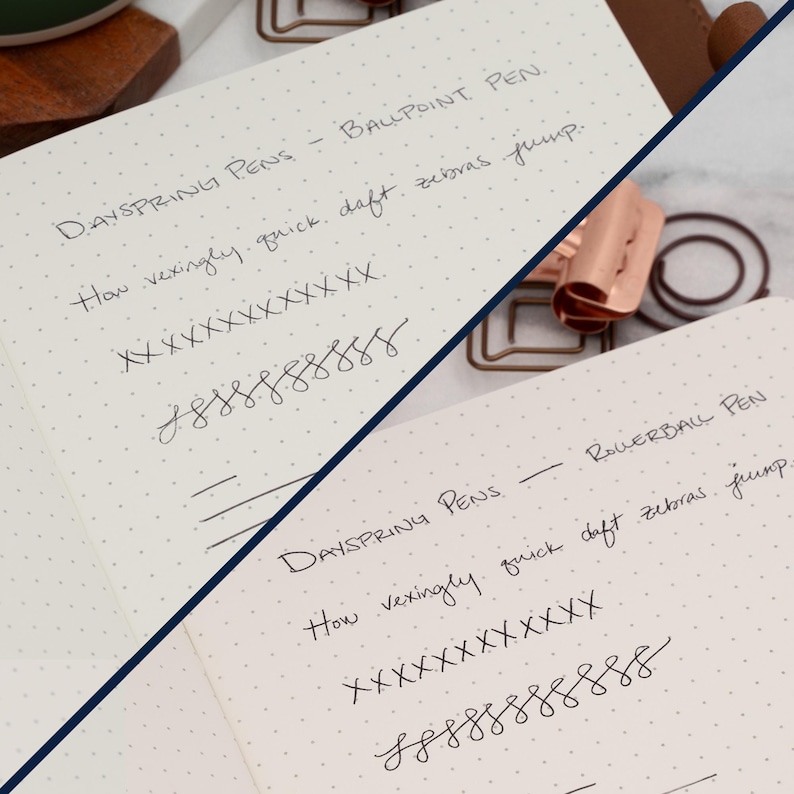 DAYSPRING PENS - BALLPOINT PEN
How vexingly quick daft zebras jump.
xxxxxxxxxxxx
DAYSPRING PENS — ROLLERBALL PEN
How vexingly quick daft zebras jump.
xxxxxxxxxxxx